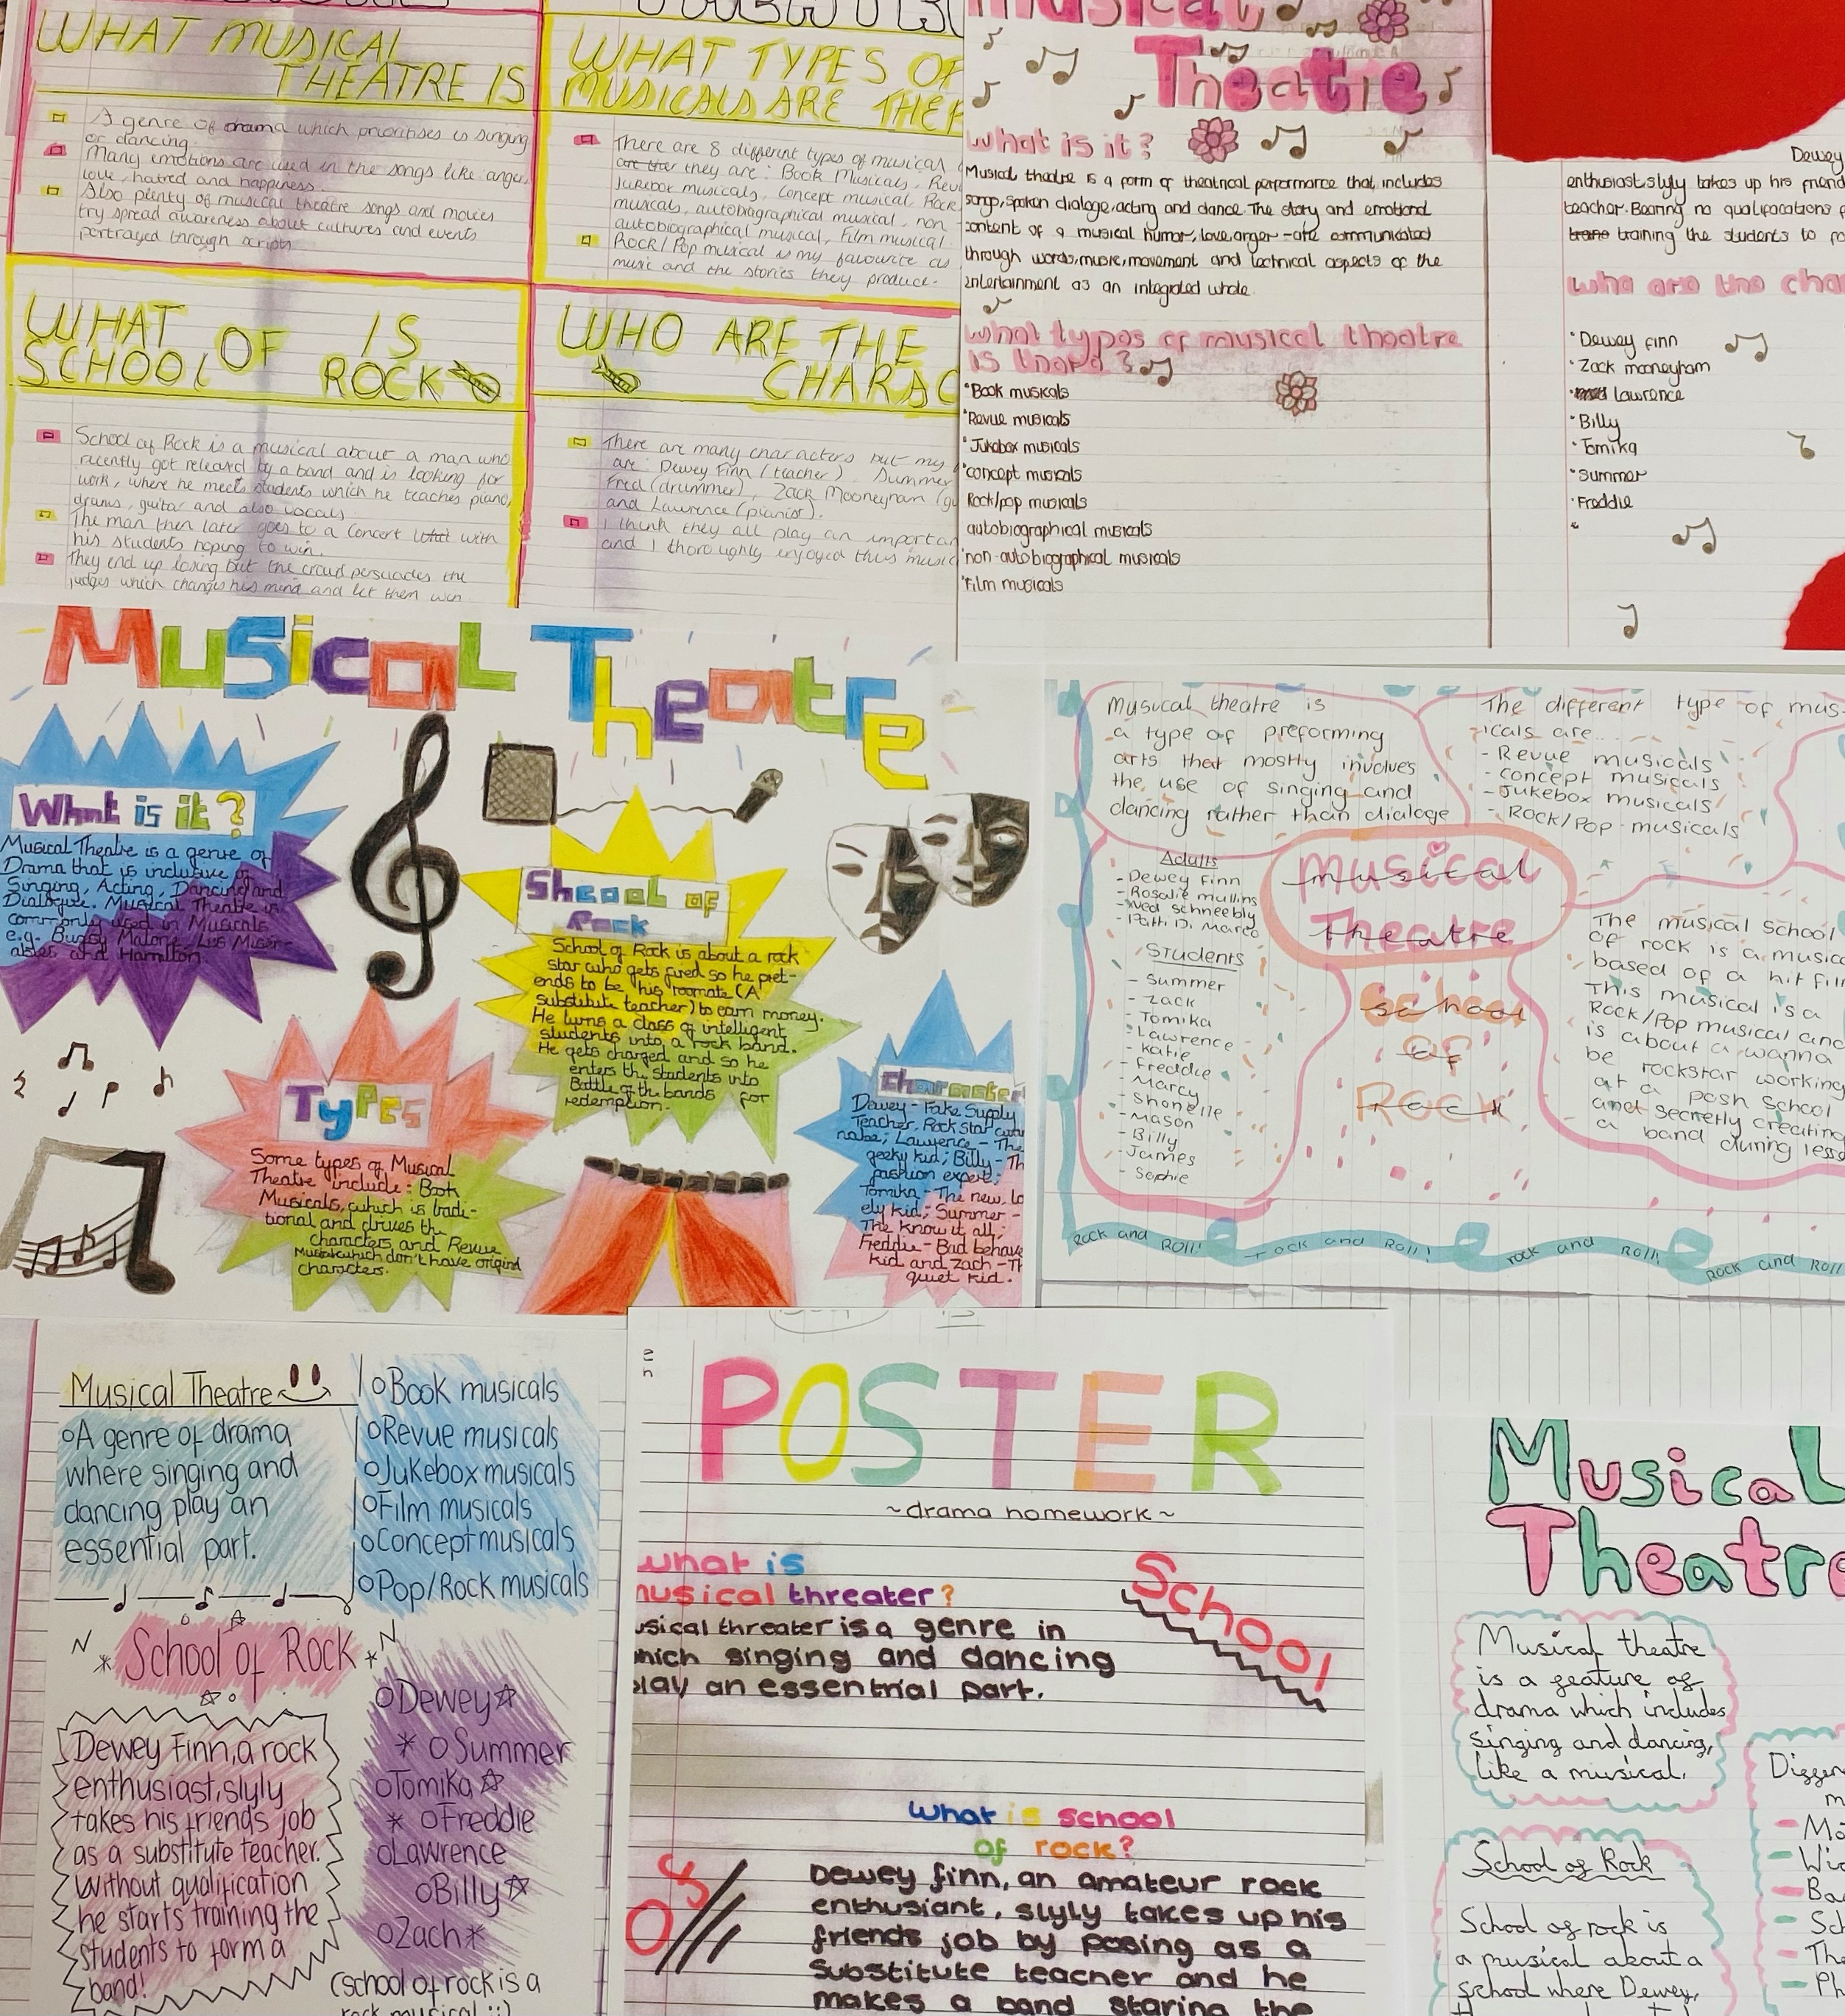 WHAT MUSICAL
THEATRE IS
A genre of drama which prioritises is singing
or dancing.
Many emotions are used in the songs like anger,
love, hatred and happiness.
Also plenty of musical theatre songs and movies
try spread awareness about cultures and events
portrayed through scripts.
WHAT TYPES OF
MUSICALS ARE THER
There are 8 different types of musical
they are: Book Musicals, Revu
Jukebox musicals, Concept musical, Rock
musicals, autobiographical musical, non
autobiographical musical, Film musical.
Rock/Pop musical is my favourite as
music and the stories they produce.
WHAT IS
SCHOOL OF ROCK
School of Rock is a musical about a man who
recently got released by a band and is looking for
work, where he meets students which he teaches piano,
drums, guitar and also vocals.
The man then later goes to a concert with
his students hoping to win.
They end up losing but the crowd persuades the
judges which changes his mind and let them win
WHO ARE THE
CHARAC
There are many characters but my
are: Dewey Finn (teacher). Summer
Fred (drummer), Zack Mooneyham (gu
and Lawrence (pianist).
I think they all play an importan
and I thoroughly enjoyed this music
musical
Theatre
What is it?
Musical theatre is a form of theatrical performance that includes
songs, spoken dialoge, acting and dance. The story and emotional
content of a musical humor, love, anger - are communicated
through words, music, movement and technical aspects of the
entertainment as an integrated whole.
what types of musical theatre
is there?
Book musicals
Revue musicals
Jukebox musicals
concept musicals
Rock/pop musicals
autobiographical musicals
non-autobiographical musicals
Film musicals
Dewey
enthusiast, slyly takes up his friend
teacher. Bearing no qualifacations
trane training the students to
who are the cha
Dewey finn
Zack mooneyham
Lawrence
Billy
Tomika
Summer
Freddie
Musical Theatre
What is it?
Musical Theatre is a genre of
Drama that is inclusive of
Singing, Acting, Dancing and
Dialogue. Musical Theatre is
commonly used in Musicals
e.g. Bugsy Malone, Les Miser-
ables and Hamilton.
Shcool of
Rock
School of Rock is about a rock
star who gets fired so he pret-
ends to be his roomate (A
substitute teacher) to earn money.
He turns a class of intelligent
students into a rock band.
He gets charged and so he
enters the students into
Battle of the bands for
redemption.
Types
Some types of Musical
Theatre include: Book
Musicals, which is tradi-
tional and drives the
characters and Revue
Musicals which don't have original
characters.
Character
Dewey - Fake Supply
Teacher, Rock star wan
nabe; Lawrence - The
geeky kid; Billy - Th
fashion expert;
Tomika - The new, lo
ely kid; Summer -
The know it all;
Freddie - Bad behave
kid and Zach - Th
quiet kid.
Musical theatre is
a type of preforming
arts that mostly involves
the use of singing and
dancing rather than dialoge
The different type of mus-
icals are...
- Revue musicals
- concept musicals
- Jukebox musicals
- Rock/Pop musicals
Adults
- Dewey Finn
- Rosalie mullins
- Ned Schneebly
- Patti Di Marco
Students
- Summer
- Zack
- Tomika
- Lawrence
- Katie
- Freddie
- Marcy
- Shonelle
- Mason
- Billy
- James
- Sophie
musical
Theatre
school
of
Rock
The musical School
of rock is a musica
based of a hit film
This musical is a
Rock/Pop musical and
is about a wanna
be rockstar working
at a posh school
and secretly creating
a band during less
Rock and ROLL!
rock and Roll!
rock and ROLL!
Rock and ROLL
Musical Theatre
A genre of drama
where singing and
dancing play an
essential part.
Book musicals
Revue musicals
Jukebox musicals
Film musicals
Concept musicals
Pop/Rock musicals
School of Rock
Dewey Finn, a rock
enthusiast, slyly
takes his friends job
as a substitute teacher.
Without qualification
he starts training the
students to form a
band!
Dewey
Summer
Tomika
Freddie
Lawrence
Billy
Zach
(school of rock is a
rock musical :))
POSTER
~drama homework~
what is
musical threater?
usical threater is a genre in
hich singing and dancing
play an essential part.
School
of
what is school
of rock?
Dewey finn, an amateur rock
enthusiant, slyly takes up his
friends job by posing as a
substitute teacher and he
makes a band staring the
Musical
Theatre
Musical theatre
is a feature of
drama which includes
singing and dancing,
like a musical.
School of Rock
School of rock is
a musical about a
school where Dewey,
Differ
m
- Wi
- Ba
- Sch
- Th
- Ph